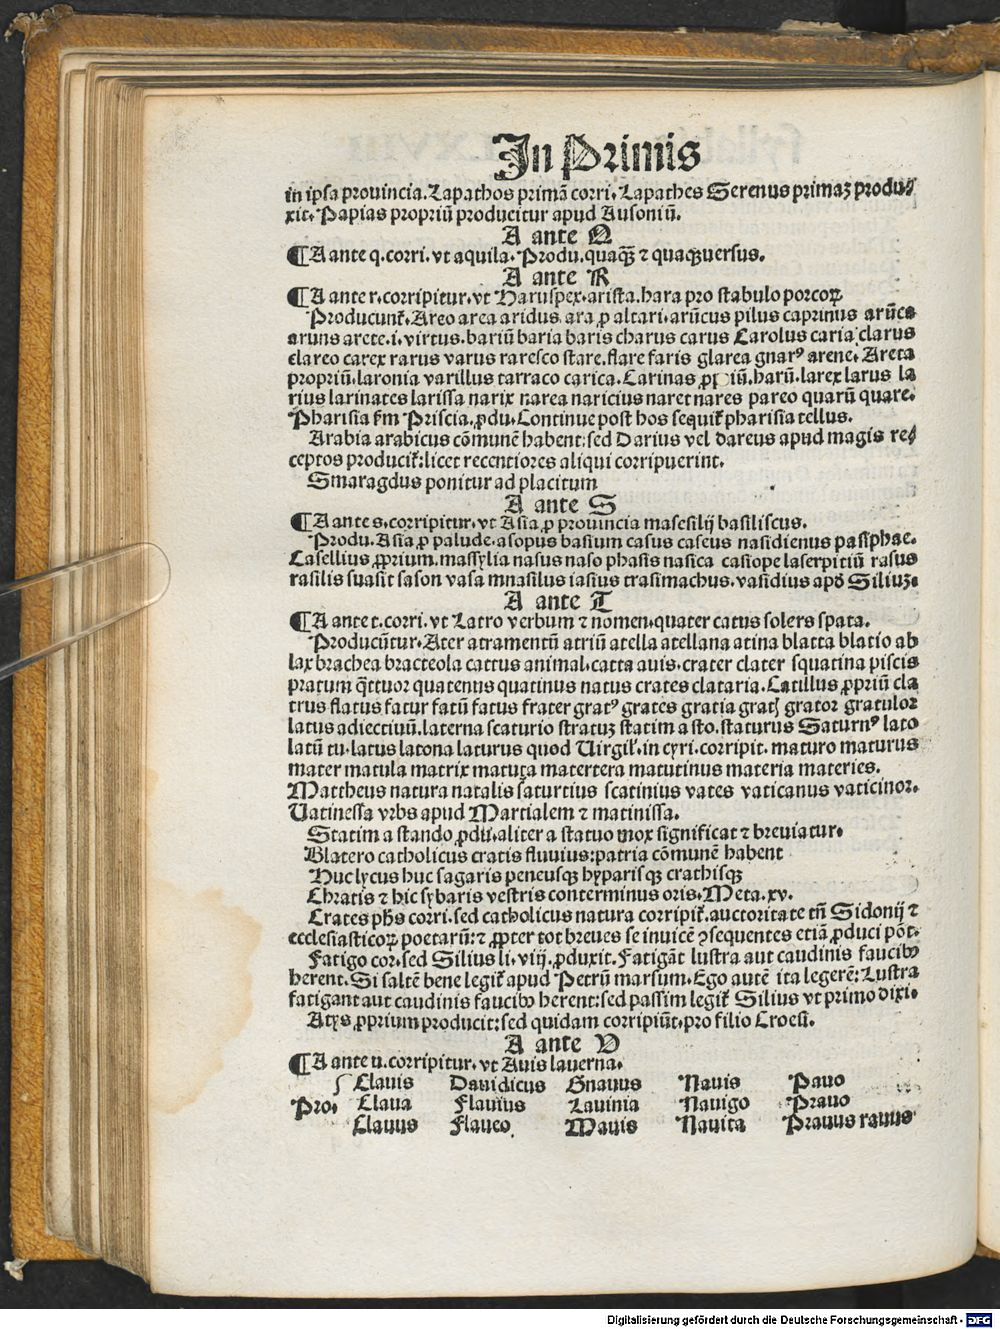 In Primis
in ipsa prouincia. Lapathos primā corri. Lapathes Serenus primaȝ produ⸗
xit. Papias propriū producitur apud Ausoniū.
A ante Q
¶A ante q. corri. vt aquila. Produ. quaqꝫ ⁊ quaqꝫuersus.
A ante R
¶A ante r. corripitur. vt Haruspex. arista. hara pro stabulo porcoꝝ
Producunt̃. Areo area aridus. ara ꝓ altari. arūcus pilus caprinus arūca
aruns arete. i. virtus. bariū baria baris charus carus Carolus caria clarus
clareo carex rarus varus raresco stare. flare faris glarea gnarꝰ arene. Areta
propriū. laronia varillus tarraco carica. Carinas ꝓpiū. harū. larex larus la
rius larinates larissa narix narea naricius naret nares pareo quarū quare.
Pharisia ẜm Priscia. ꝓdu. Continue post hos sequit̃ pharisia tellus.
Arabia arabicus cōmunē habent: sed Darius vel dareus apud magis re⸗
ceptos producit̃: licet recentiores aliqui corripuerint.
Smaragdus ponitur ad placitum
A ante S
¶A ante s. corripitur. vt Asia ꝓ prouincia masesilij basiliscus.
Produ. Asia ꝓ palude. asopus basium casus caseus nasidienus pasiphae.
Casellius ꝓprium. massylia nasus naso phasis nasica casiope laserpitiū rasus
rasilis suasit sason vasa mnasilus iasius trasimachus. vasidius apđ Siliuȝ.
A ante T
¶A ante t. corri. vt Latro verbum ⁊ nomen. quater catus solers spata.
Producūtur. Ater atramentū atriū atella atellana atina blatta blatio ab
lax brachea bracteola cattus animal. catta auis. crater clater squatina piscis
pratum q̄ttuor quatenus quatinus natus crates clataria. Catillus ꝓpriū cla
trus flatus fatur fatū fatus frater gratꝰ grates gratia gratꝭ grator gratulor
latus adiectiuū. laterna scaturio stratuȝ statim a sto. staturus Saturnꝰ lato
latū tu. latus latona laturus quod Uirgil̃. in cyri. corripit. maturo maturus
mater matula matrix matura matertera matutinus materia materies.
Mattheus natura natalis saturtius scatinius vates vaticanus vaticinor.
Uatinessa vrbs apud Martialem ⁊ matinissa.
Statim a stando ꝓdū. aliter a statuo mox significat ⁊ breuiatur.
Blatero catholicus cratis fluuius: patria cōmunē habent
Huc lycus huc sagaris peneusqꝫ hyparisqꝫ crathisqꝫ
Chratis ⁊ hic sybaris vestris conterminus oris. Meta. xv.
Crates ph̄s corri. sed catholicus natura corripit̃. auctoritate tn̄ Sidonij ⁊
ecclesiasticoꝝ poetarū: ⁊ ꝓpter tot breues se inuicē ꝯsequentes etiā ꝓduci pōt.
Fatigo cor. sed Silius li. viij. ꝓduxit. Fatigāt lustra aut caudinis faucibꝰ
herent. Si saltē bene legit̃ apud Petrū marsum. Ego autē ita legerē: Lustra
fatigant aut caudinis faucibꝰ herent: sed passim legit̃ Silius vt primo dixi.
Atys ꝓprium producit: sed quidam corripiūt. pro filio Croesi.
A ante V
¶A ante u. corripitur. vt Auis lauerna.
Clauis Dauidicus Gnauus Nauis Pauo
Pro. Claua Flauius Lauinia Nauigo Prauo
Clauus Flaueo Mauis Nauita Prauus rauus
Digitalisierung gefördert durch die Deutsche Forschungsgemeinschaft - DFG